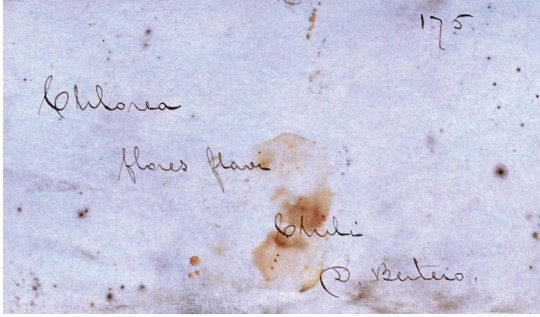 175
Chlorea
flores flavi
Chili
D. Bertero.